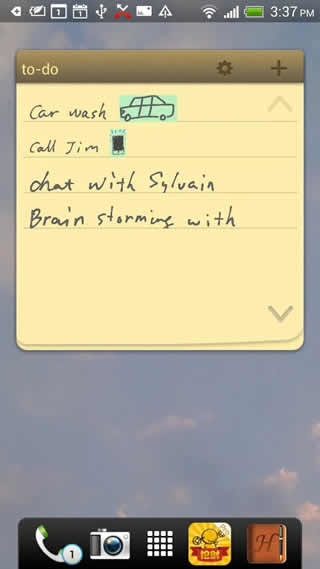 3:37 PM
to-do
Car wash
Call Jim
chat with Sylvain
Brain storming with
1
H